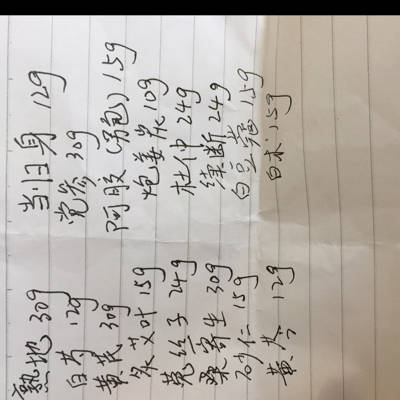 熟地 30g 当归身 12g
白芍 12g 党参 30g
黄芪 30g 阿胶(另包) 15g
炙艾叶 15g 炮姜炭 10g
菟丝子 24g 杜仲 24g
桑寄生 30g 续断 24g
砂仁 15g 白豆蔻 15g
黄芩 12g 白术 15g